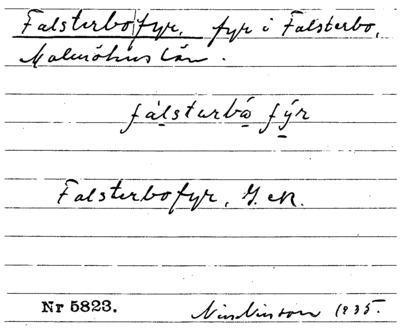 Falsterbo fyr, fyr i Falsterbo,
Malmöhus län.
fálsturbå fýr
Falsterbo fyr, G. eR.
Nr 5823. Nils Nilsson 1935.